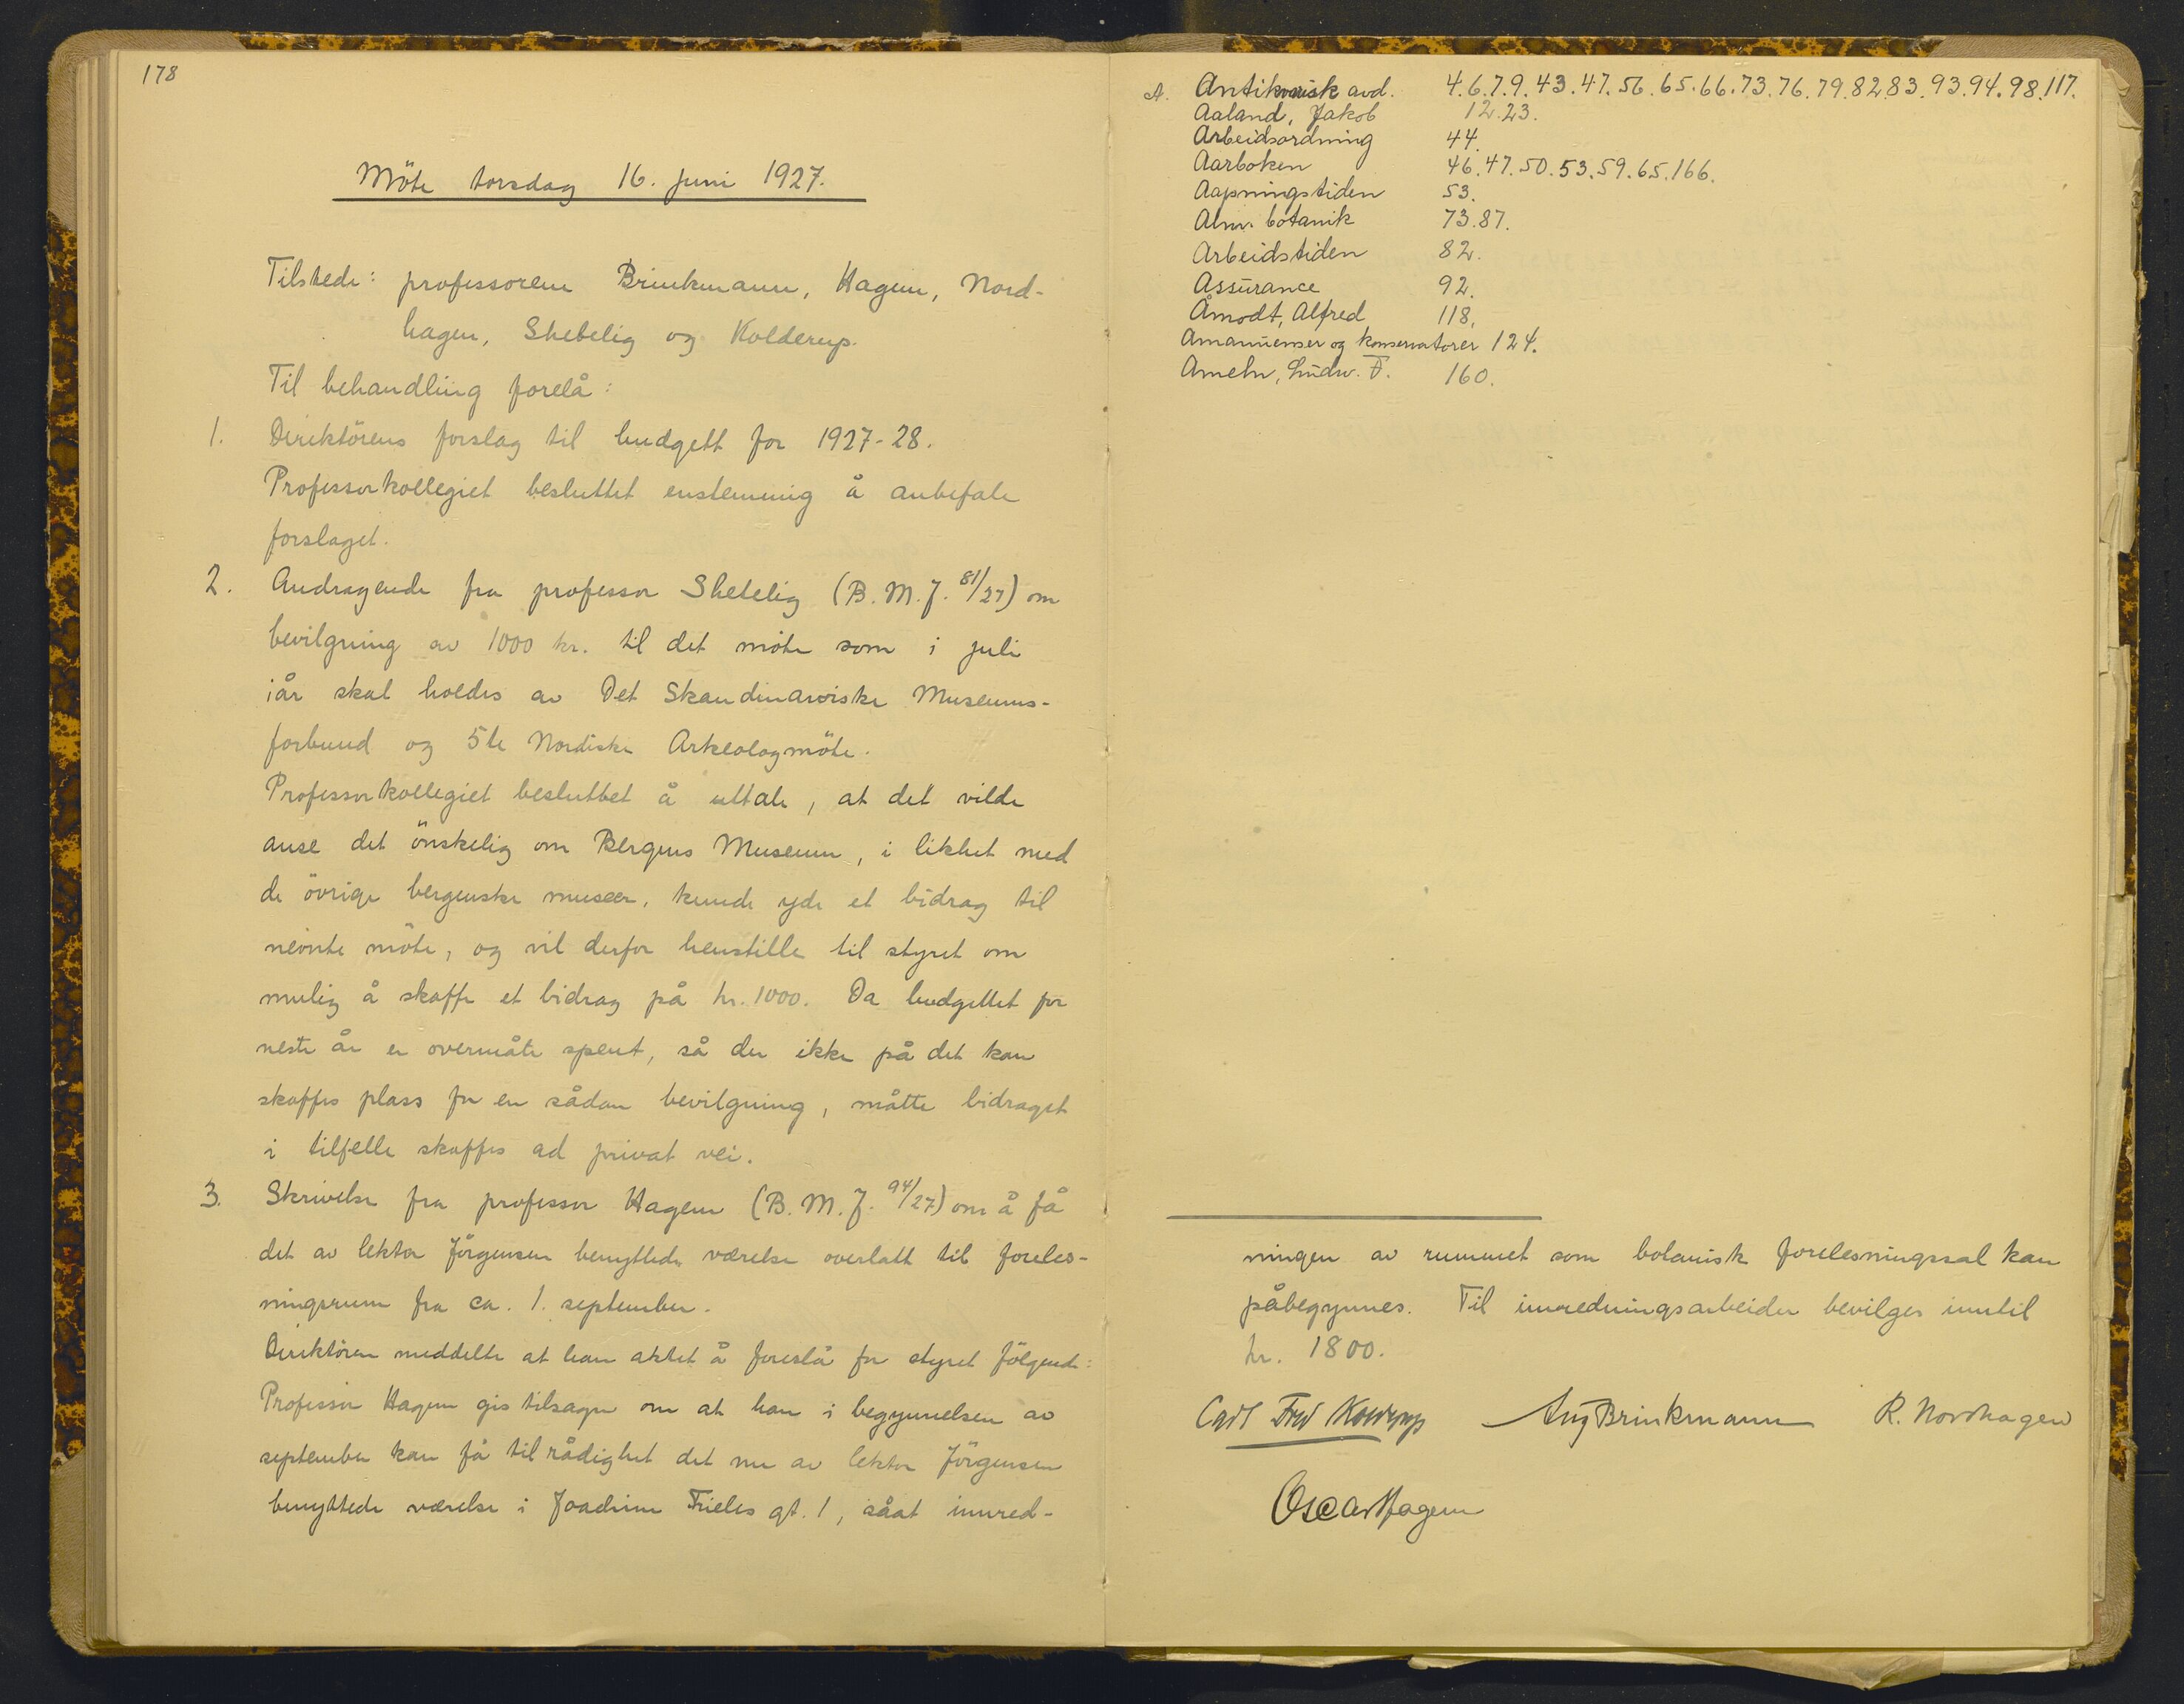 178
Möte torsdag 16. juni 1927.
Tilstede: professorene Brinkmann, Hagem, Nord-
hagen, Shetelig og Kolderup.
Til behandling forelå:
1. Direktörens forslag til budgett for 1927-28.
Professorkollegiet besluttet enstemmig å anbefale
forslaget.
2. Andragende fra professor Shetelig (B.M.J. 81/27) om
bevilgning av 1000 kr. til det möte som i juli
iår skal holdes av Det Skandinaviske Museums-
forbund og 5te Nordiske Arkeologmöte.
Professorkollegiet besluttet å uttale, at det vilde
anse det önskelig om Bergens Museum, i likhet med
de övrige bergenske museer, kunde yde et bidrag til
nevnte möte, og vil derfor henstille til styret om
mulig å skaffe et bidrag på kr. 1000. Da budgettet for
neste år er overmåte spent, så der ikke på det kan
skaffes plass for en sådan bevilgning, måtte bidraget
i tilfelle skaffes ad privat vei.
3. Skrivelse fra professor Hagem (B.M.J. 94/27) om å få
det av lektor Jörgensen benyttede værelse overlatt til foreles-
ningsrum fra ca. 1. september.
Direktören meddelte at han aktet å foreslå for styret fölgende:
Professor Hagem gis tilsagn om at han i begynnelsen av
september kan få til rådighet det nu av lektor Jörgensen
benyttede værelse i Joachim Frieles gt. 1, såat innred-
A. Antikvarisk avd. 4.6.7.9.43.47.56.65.66.73.76.79.82.83.93.94.98.117.
Aaland, Jakob 12.23.
Arbeidsordning 44.
Aarboken 46.47.50.53.59.65.166.
Aapningstiden 53.
Alm. botanik 73.87.
Arbeidstiden 82.
Assurance 92.
Åmodt, Alfred 118.
Amanuenser og konservatorer 124.
Ameln, Ludw. F. 160.
ningen av rummet som botanisk forelesningssal kan
påbegynnes. Til innredningsarbeider bevilges inntil
kr. 1800.
Carl Fred Kolderup Aug Brinkmann R. Nordhagen
Oscar Hagem